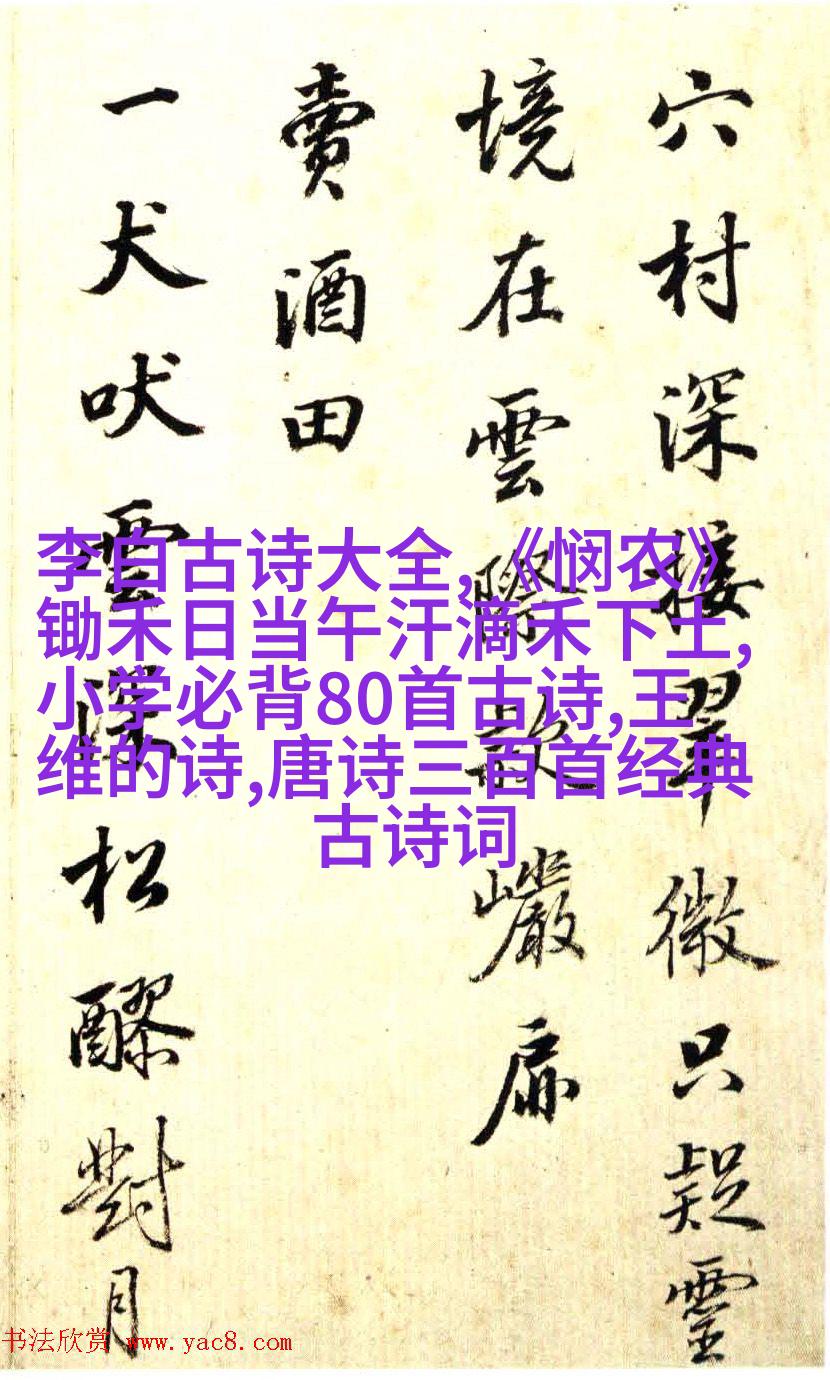 穴村深接翠微只疑靈
境在雲際款巖扉
賣酒田
一犬吠雲深松醪對月
李白古诗大全,《悯农》
锄禾日当午汗滴禾下土,
小学必背80首古诗,王
维的诗,唐诗三百首经典
古诗词
书法欣赏 www.yac8.com